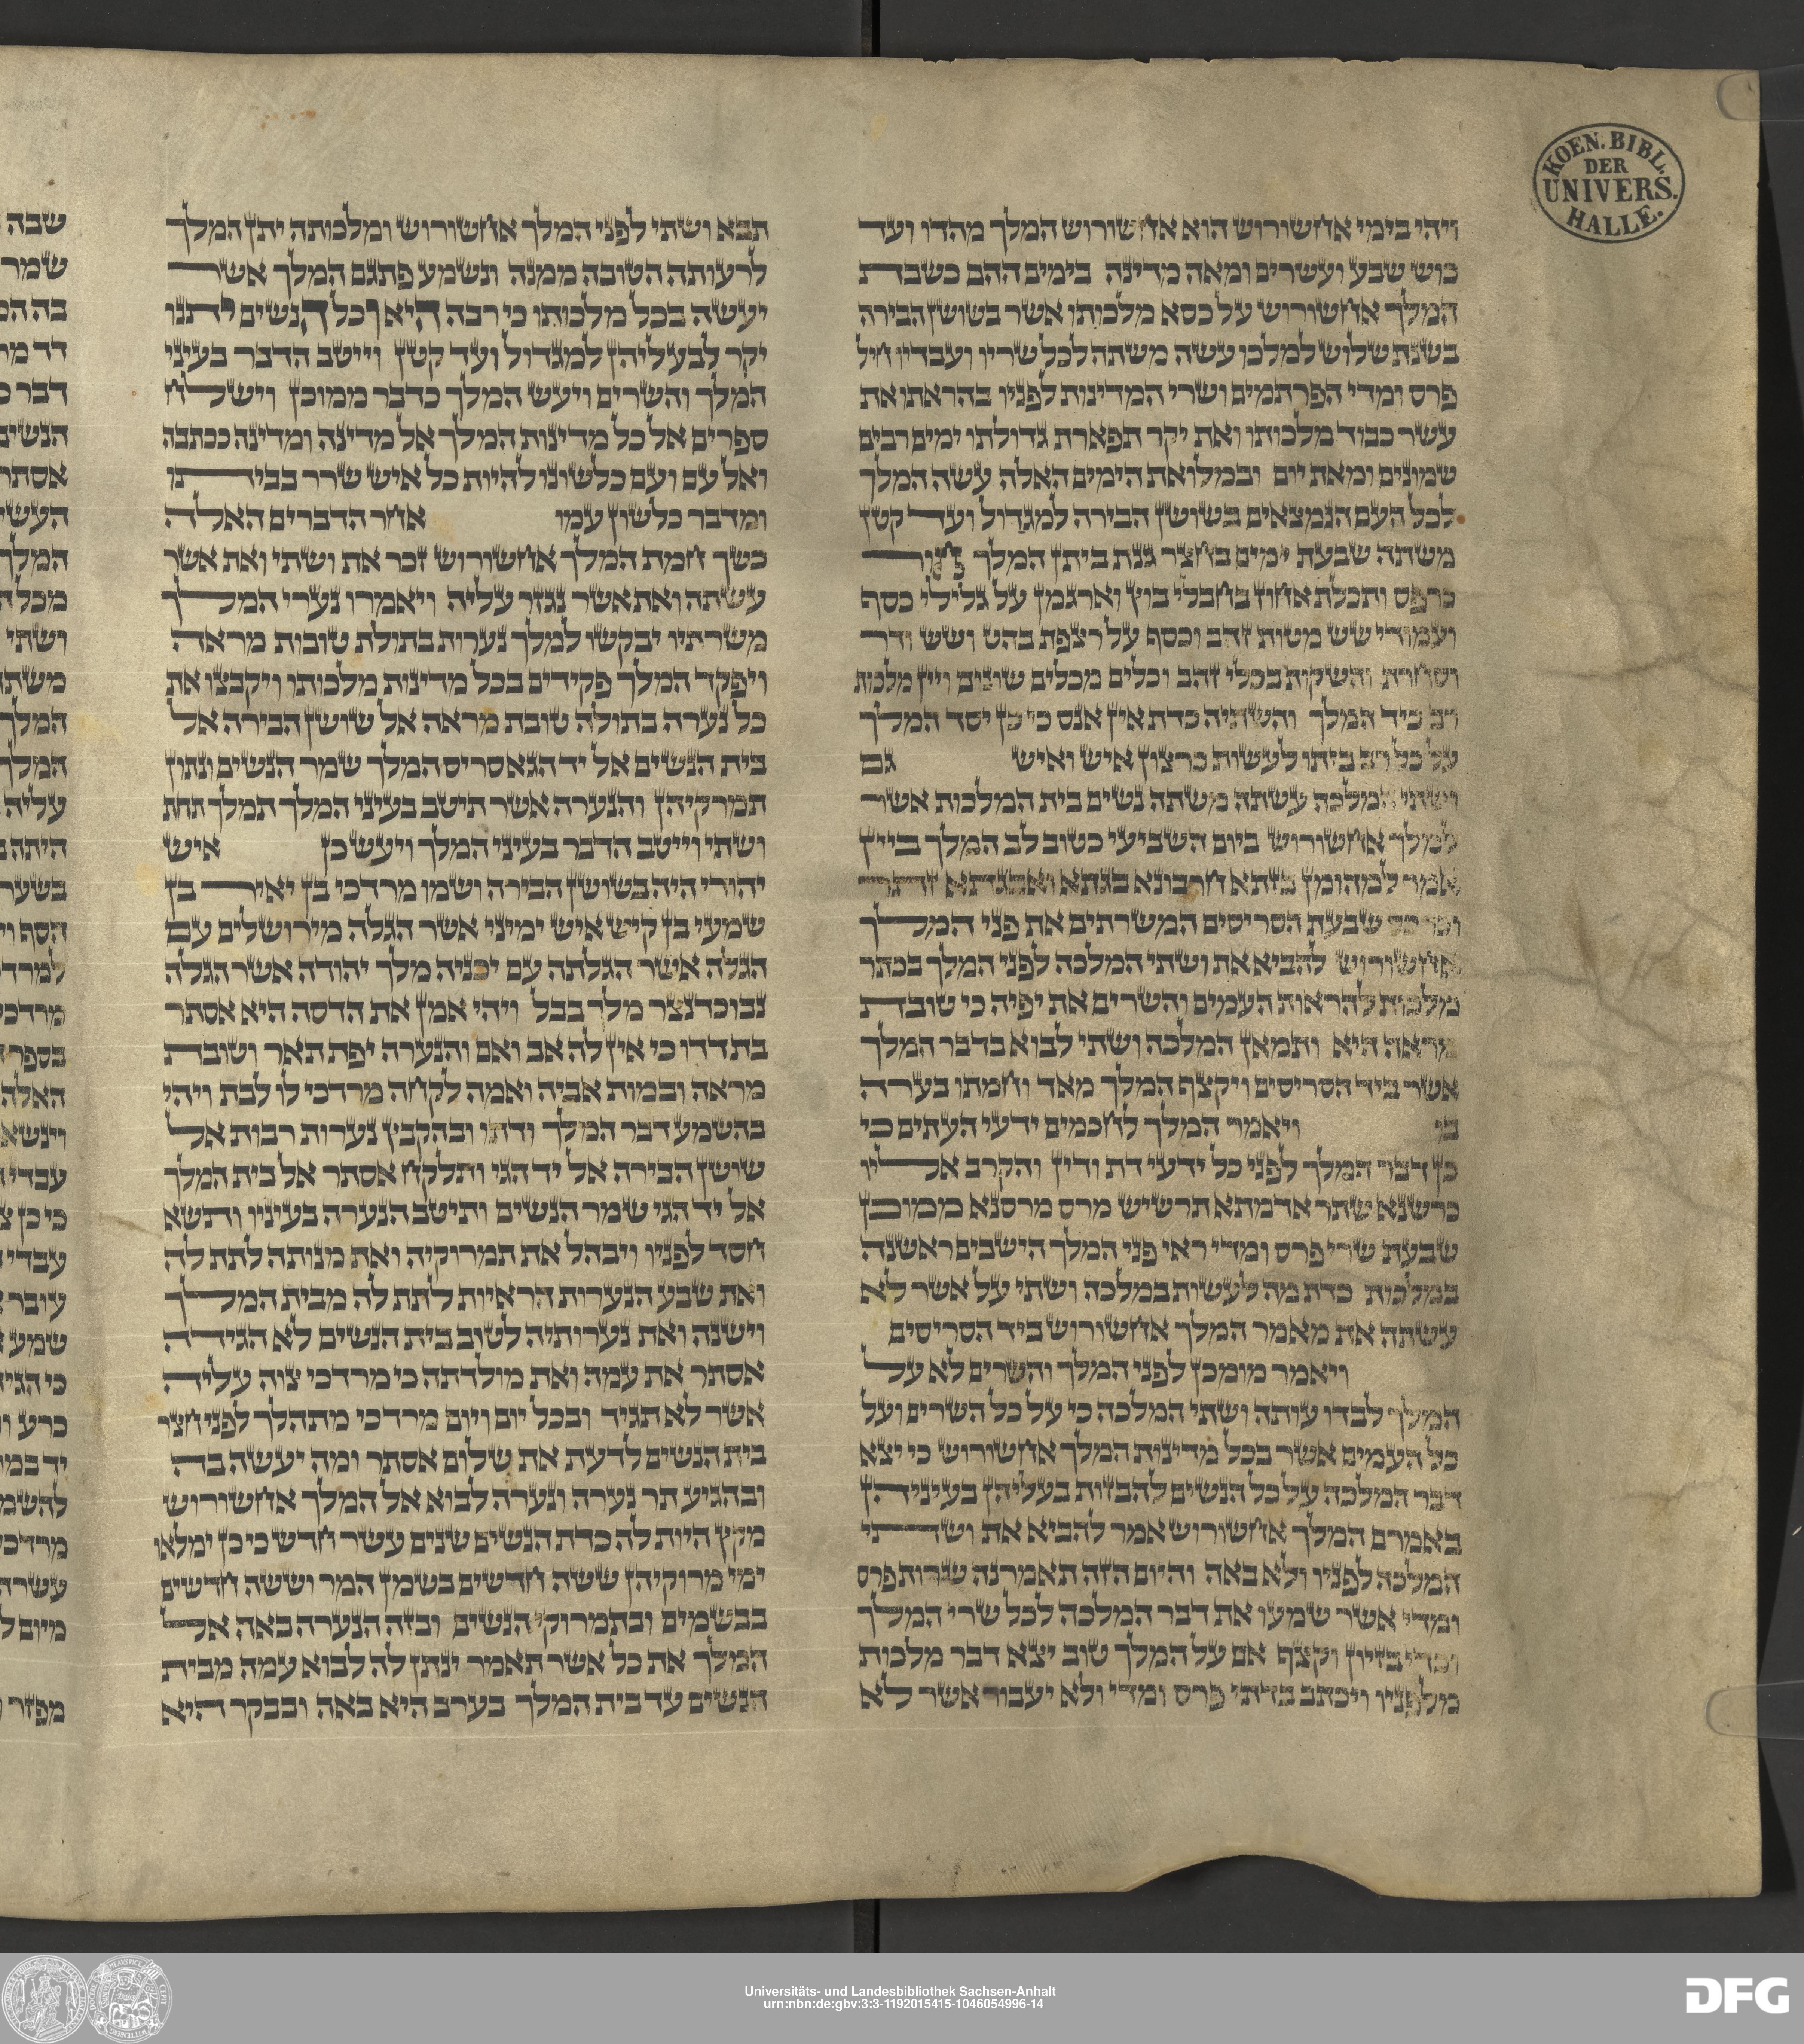 KOEN. BIBL.
DER
UNIVERS.
HALLE.
ויהי בימי אחשורוש הוא אחשורוש המלך מהדו ועד
כוש שבע ועשרים ומאה מדינה בימים ההם כשבת
המלך אחשורוש על כסא מלכותו אשר בשושן הבירה
בשנת שלוש למלכו עשה משתה לכל שריו ועבדיו חיל
פרס ומדי הפרתמים ושרי המדינות לפניו בהראתו את
עשר כבוד מלכותו ואת יקר תפארת גדולתו ימים רבים
שמונים ומאת יום ובמלואת הימים האלה עשה המלך
לכל העם הנמצאים בשושן הבירה למגדול ועד קטן
משתה שבעת ימים בחצר גנת ביתן המלך חור
כרפס ותכלת אחוז בחבלי בוץ וארגמן על גלילי כסף
ועמודי שש מטות זהב וכסף על רצפת בהט ושש ודר
וסחרת והשקות בכלי זהב וכלים מכלים שונים ויין מלכות
רב כיד המלך והשתיה כדת אין אנס כי כן יסד המלך
על כל רב ביתו לעשות כרצון איש ואיש גם
ושתי המלכה עשתה משתה נשים בית המלכות אשר
למלך אחשורוש ביום השביעי כטוב לב המלך ביין
אמר למהומן בזתא חרבונא בגתא ואבגתא זתר
וכרכס שבעת הסריסים המשרתים את פני המלך
אחשורוש להביא את ושתי המלכה לפני המלך בכתר
מלכות להראות העמים והשרים את יפיה כי טובת
מראה היא ותמאן המלכה ושתי לבוא בדבר המלך
אשר ביד הסריסים ויקצף המלך מאד וחמתו בערה
בו ויאמר המלך לחכמים ידעי העתים כי
כן דבר המלך לפני כל ידעי דת ודין והקרב אליו
כרשנא שתר אדמתא תרשיש מרס מרסנא ממוכן
שבעת שרי פרס ומדי ראי פני המלך הישבים ראשנה
במלכות כדת מה לעשות במלכה ושתי על אשר לא
עשתה את מאמר המלך אחשורוש ביד הסריסים
ויאמר מומכן לפני המלך והשרים לא על
המלך לבדו עותה ושתי המלכה כי על כל השרים ועל
כל העמים אשר בכל מדינות המלך אחשורוש כי יצא
דבר המלכה על כל הנשים להבזות בעליהן בעיניהן
באמרם המלך אחשורוש אמר להביא את ושתי
המלכה לפניו ולא באה והיום הזה תאמרנה שרות פרס
ומדי אשר שמעו את דבר המלכה לכל שרי המלך
וכדי בזיון וקצף אם על המלך טוב יצא דבר מלכות
מלפניו ויכתב בדתי פרס ומדי ולא יעבור אשר לא
תבא ושתי לפני המלך אחשורוש ומלכותה יתן המלך
לרעותה הטובה ממנה ונשמע פתגם המלך אשר
יעשה בכל מלכותו כי רבה היא וכל הנשים יתנו
יקר לבעליהן למגדול ועד קטן וייטב הדבר בעיני
המלך והשרים ויעש המלך כדבר ממוכן וישלח
ספרים אל כל מדינות המלך אל מדינה ומדינה ככתבה
ואל עם ועם כלשונו להיות כל איש שרר בביתו
ומדבר כלשון עמו אחר הדברים האלה
כשך חמת המלך אחשורוש זכר את ושתי ואת אשר
עשתה ואת אשר נגזר עליה ויאמרו נערי המלך
משרתיו יבקשו למלך נערות בתולת טובות מראה
ויפקד המלך פקידים בכל מדינות מלכותו ויקבצו את
כל נערה בתולה טובת מראה אל שושן הבירה אל
בית הנשים אל יד הגא סריס המלך שמר הנשים ונתון
תמרקיהן והנערה אשר תיטב בעיני המלך תמלך תחת
ושתי וייטב הדבר בעיני המלך ויעש כן איש
יהודי היה בשושן הבירה ושמו מרדכי בן יאיר בן
שמעי בן קיש איש ימיני אשר הגלה מירושלים עם
הגלה אשר הגלתה עם יכניה מלך יהודה אשר הגלה
נבוכדנצר מלך בבל ויהי אמן את הדסה היא אסתר
בת דדו כי אין לה אב ואם והנערה יפת תאר וטובת
מראה ובמות אביה ואמה לקחה מרדכי לו לבת ויהי
בהשמע דבר המלך ודתו ובהקבץ נערות רבות אל
שושן הבירה אל יד הגי ותלקח אסתר אל בית המלך
אל יד הגי שמר הנשים ותיטב הנערה בעיניו ותשא
חסד לפניו ויבהל את תמרוקיה ואת מנותה לתת לה
ואת שבע הנערות הראיות לתת לה מבית המלך
וישנה ואת נערותיה לטוב בית הנשים לא הגידה
אסתר את עמה ואת מולדתה כי מרדכי צוה עליה
אשר לא תגיד ובכל יום ויום מרדכי מתהלך לפני חצר
בית הנשים לדעת את שלום אסתר ומה יעשה בה
ובהגיע תר נערה ונערה לבוא אל המלך אחשורוש
מקץ היות לה כדת הנשים שנים עשר חדש כי כן ימלאו
ימי מרוקיהן ששה חדשים בשמן המר וששה חדשים
בבשמים ובתמרוקי הנשים ובזה הנערה באה אל
המלך את כל אשר תאמר ינתן לה לבוא עמה מבית
הנשים עד בית המלך בערב היא באה ובבקר היא
שבה
שמר
בה המ
דד מר
דבר כ
הנשים
אסתר
העשי
המלך
מכל ה
ושתי
משתה
המלך
המלך
עליה
היתה ב
בשער
הסף וי
למרדכ
מרדכי
בספר ד
האלה
וינשא
עבדי ה
כי כן צ
עבדי ה
עובר א
שמע א
כי הגיד
כרע ומ
יד במר
להשמ
מרדכי
עשרה
מיום ל
מפזר ו
Universitäts- und Landesbibliothek Sachsen-Anhalt
urn:nbn:de:gbv:3:3-1192015415-1046054996-14
DFG